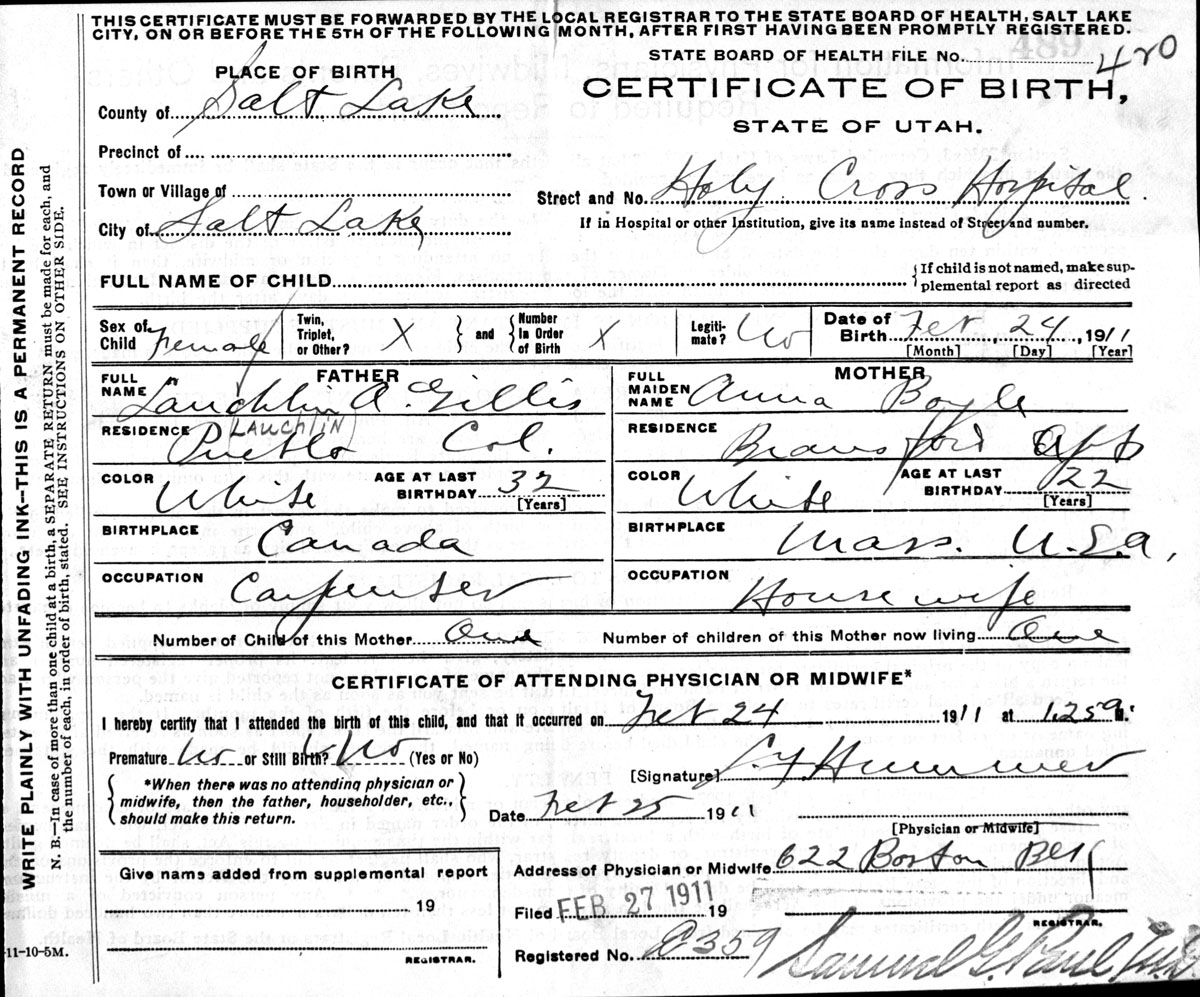 THIS CERTIFICATE MUST BE FORWARDED BY THE LOCAL REGISTRAR TO THE STATE BOARD OF HEALTH, SALT LAKE
CITY, ON OR BEFORE THE 5TH OF THE FOLLOWING MONTH, AFTER FIRST HAVING BEEN PROMPTLY REGISTERED.
STATE BOARD OF HEALTH FILE No. 420
489
CERTIFICATE OF BIRTH,
STATE OF UTAH.
PLACE OF BIRTH
County of Salt Lake
Precinct of
Town or Village of
City of Salt Lake
Street and No. Holy Cross Hospital
If in Hospital or other Institution, give its name instead of Street and number.
FULL NAME OF CHILD
{If child is not named, make sup-
plemental report as directed
Sex of Child Female
Twin, Triplet, or Other? X
and
Number In Order of Birth X
Legiti-mate? No
Date of Birth Feb. 24, 1911
[Month] [Day] [Year]
FATHER
FULL NAME Lauchlin A. Gillis
LAUCHLIN
RESIDENCE Pueblo Col.
COLOR White
AGE AT LAST BIRTHDAY 32 [Years]
BIRTHPLACE Canada
OCCUPATION Carpenter
MOTHER
FULL MAIDEN NAME Anna Boyle
RESIDENCE Bransford
COLOR White
AGE AT LAST BIRTHDAY 22 [Years]
BIRTHPLACE Mass. U.S.A.
OCCUPATION Housewife
Number of Child of this Mother One
Number of children of this Mother now living One
CERTIFICATE OF ATTENDING PHYSICIAN OR MIDWIFE*
I hereby certify that I attended the birth of this child, and that it occurred on Feb. 24 1911 at 1.25
Premature No or Still Birth? No (Yes or No)
*When there was no attending physician or
midwife, then the father, householder, etc.,
should make this return.
[Signature]
Date Feb 25 1911
[Physician or Midwife]
Give name added from supplemental report
19
REGISTRAR.
Address of Physician or Midwife 622 Boston Blk
Filed FEB 27 1911 19
REGISTRAR.
Registered No. 359
Samuel G. Paul
WRITE PLAINLY WITH UNFADING INK—THIS IS A PERMANENT RECORD
N. B.—In case of more than one child at a birth, a SEPARATE RETURN must be made for each, and
the number of each, in order of birth, stated. SEE INSTRUCTIONS ON OTHER SIDE.
11-10-5M.